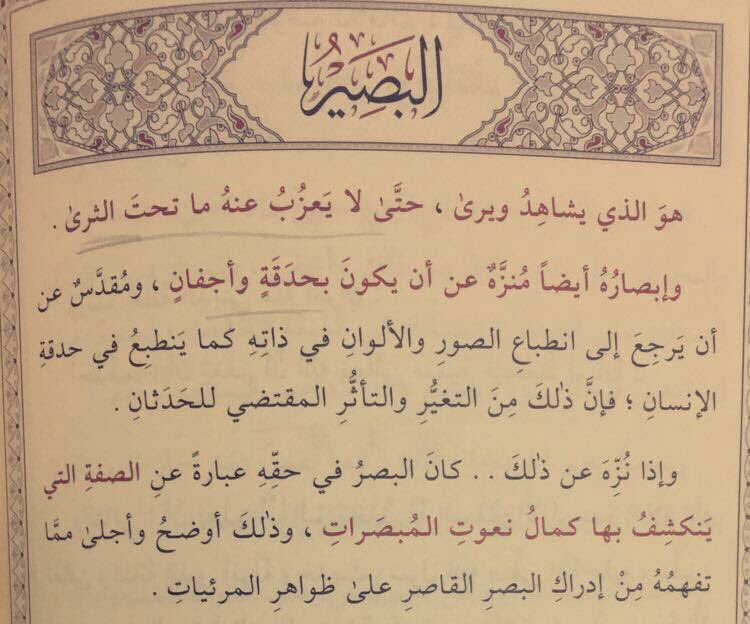 البَصِيْرُ
هوَ الذي يشاهِدُ ويرىٰ ، حتَّىٰ لا يَعزُبُ عنهُ ما تحتَ الثرىٰ .
وإبصارُهُ أيضاً مُنزَّهٌ عن أن يكونَ بحدَقَةٍ وأجفانٍ ، ومُقدَّسٌ عن
أن يَرجِعَ إلى انطباعِ الصورِ والألوانِ في ذاتِهِ كما يَنطبِعُ في حدقةِ
الإنسانِ ؛ فإنَّ ذٰلكَ مِنَ التغيُّرِ والتأثُّرِ المقتضي للحَدَثانِ .
وإذا نُزِّهَ عن ذٰلكَ . . كانَ البصرُ في حقِّهِ عبارةً عنِ الصفةِ التي
يَنكشِفُ بها كمالُ نعوتِ المُبصَراتِ ، وذٰلكَ أوضحُ وأجلىٰ ممَّا
تفهمُهُ مِنْ إدراكِ البصرِ القاصرِ علىٰ ظواهرِ المرئياتِ .